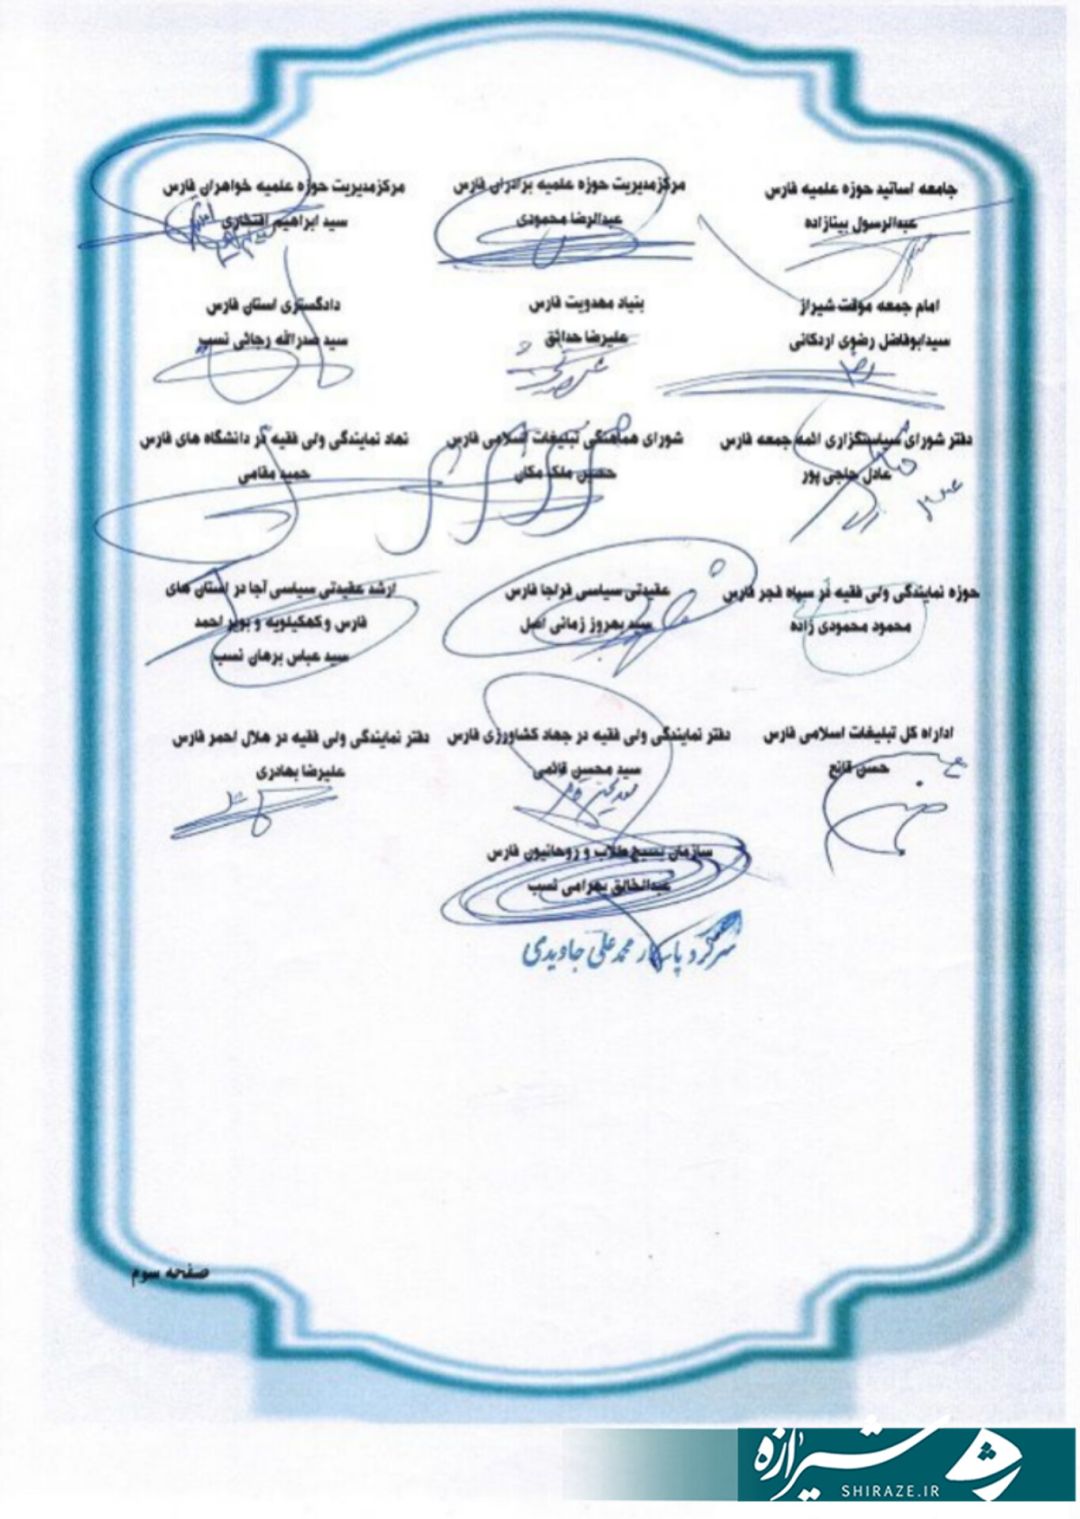 جامعه اساتید حوزه علمیه فارس
عبدالرسول بینازاده
مرکزمدیریت حوزه علمیه برادران فارس
عبدالرضا محمودی
مرکزمدیریت حوزه علمیه خواهران فارس
سید ابراهیم افتخاری
امام جمعه موقت شیراز
سیدابوفاضل رضوی اردکانی
بنیاد مهدویت فارس
علیرضا حدائق
دادگستری استان فارس
سید صدرالله رجائی نسب
دفتر شورای سیاستگزاری ائمه جمعه فارس
عادل حاجی پور
شورای هماهنگی تبلیغات اسلامی فارس
حسین ملک مکان
نهاد نمایندگی ولی فقیه در دانشگاه های فارس
حمید مقامی
حوزه نمایندگی ولی فقیه در سپاه فجر فارس
محمود محمودی زاده
عقیدتی سیاسی فراجا فارس
سید بهروز زمانی اصل
ارشد عقیدتی سیاسی آجا در استان های
فارس و کهکیلویه و بویر احمد
سید عباس برهان نسب
اداراه کل تبلیغات اسلامی فارس
حسن قانع
دفتر نمایندگی ولی فقیه در جهاد کشاورزی فارس
سید محسن قائمی
دفتر نمایندگی ولی فقیه در هلال احمر فارس
علیرضا بهادری
سازمان بسیج طلاب و روحانیون فارس
عبدالخالق بهرامی نسب
سرگرد پاسدار محمدعلی جاویدی
صفحه سوم
شیرازه
SHIRAZE.IR